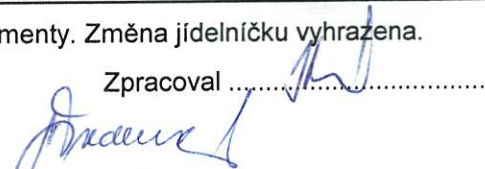 menty. Změna jídelníčku vyhrazena.
Zpracoval ....................................